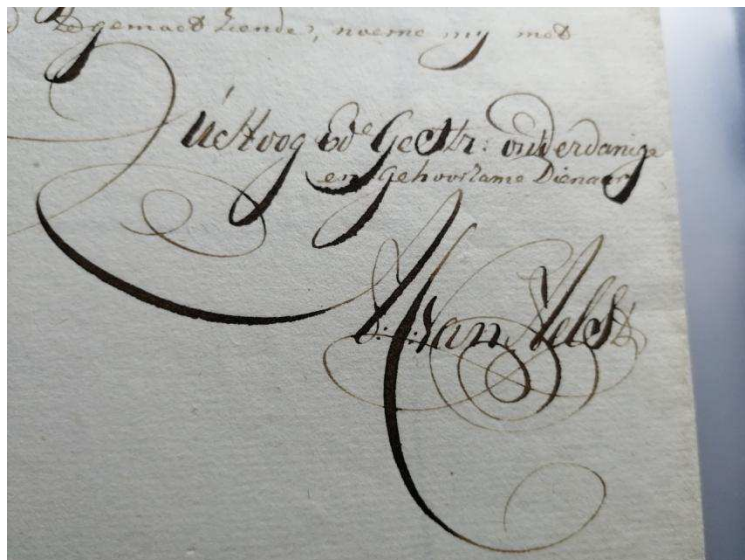 gemaekt ziende, noeme my met
UEd Hoog Ed. Gestr: onderdanige
en gehoorsame Dienaar
van